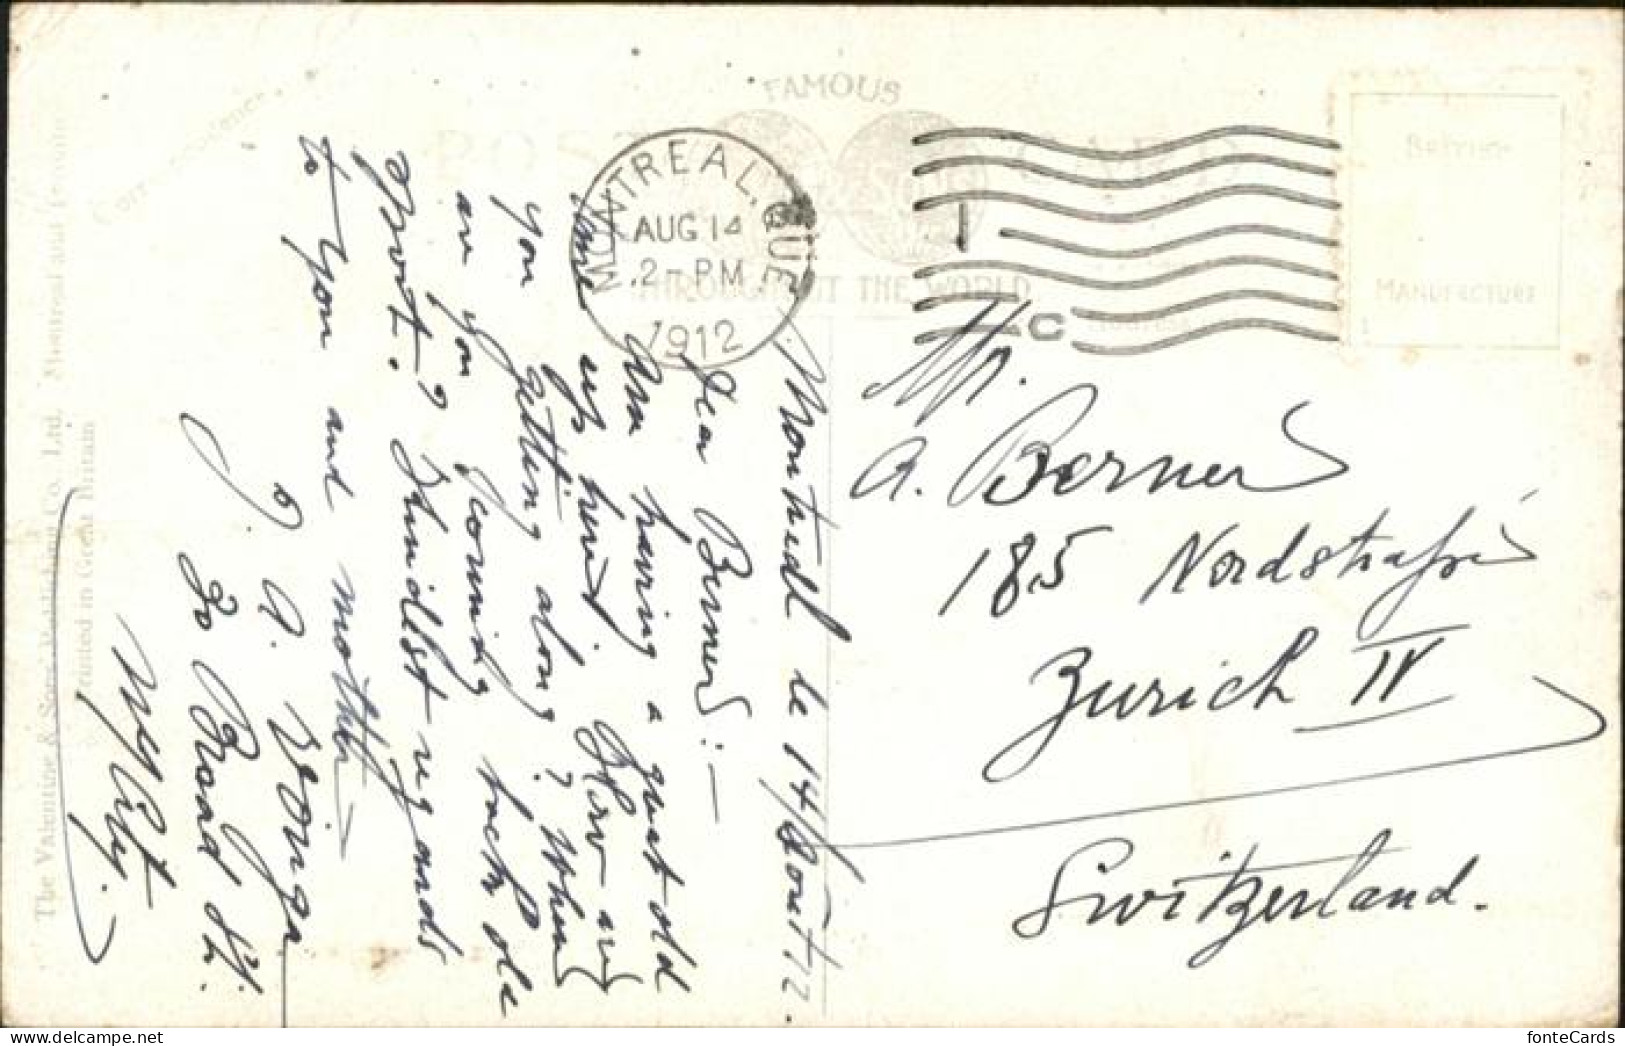 FAMOUS
POST CARD
THROUGHOUT THE WORLD
Correspondence
Address
BRITISH
MANUFACTURE
MONTREAL. QUE.
AUG 14
2 - PM
1912
1
C
The Valentine & Sons' Publishing Co., Ltd. Montreal and Toronto
Printed in Great Britain
Montreal le 14/Août 12
Dear Berner! —
Am having a great old
time up here! How are
you getting along? When
are you coming back old
Sport? Kindest regards
to you and mother
J. A.
30 Broad St.
N. Y. City.
Mr.
A. Berner
185 Nordstraße
Zurich IV
Switzerland.
fonteCards